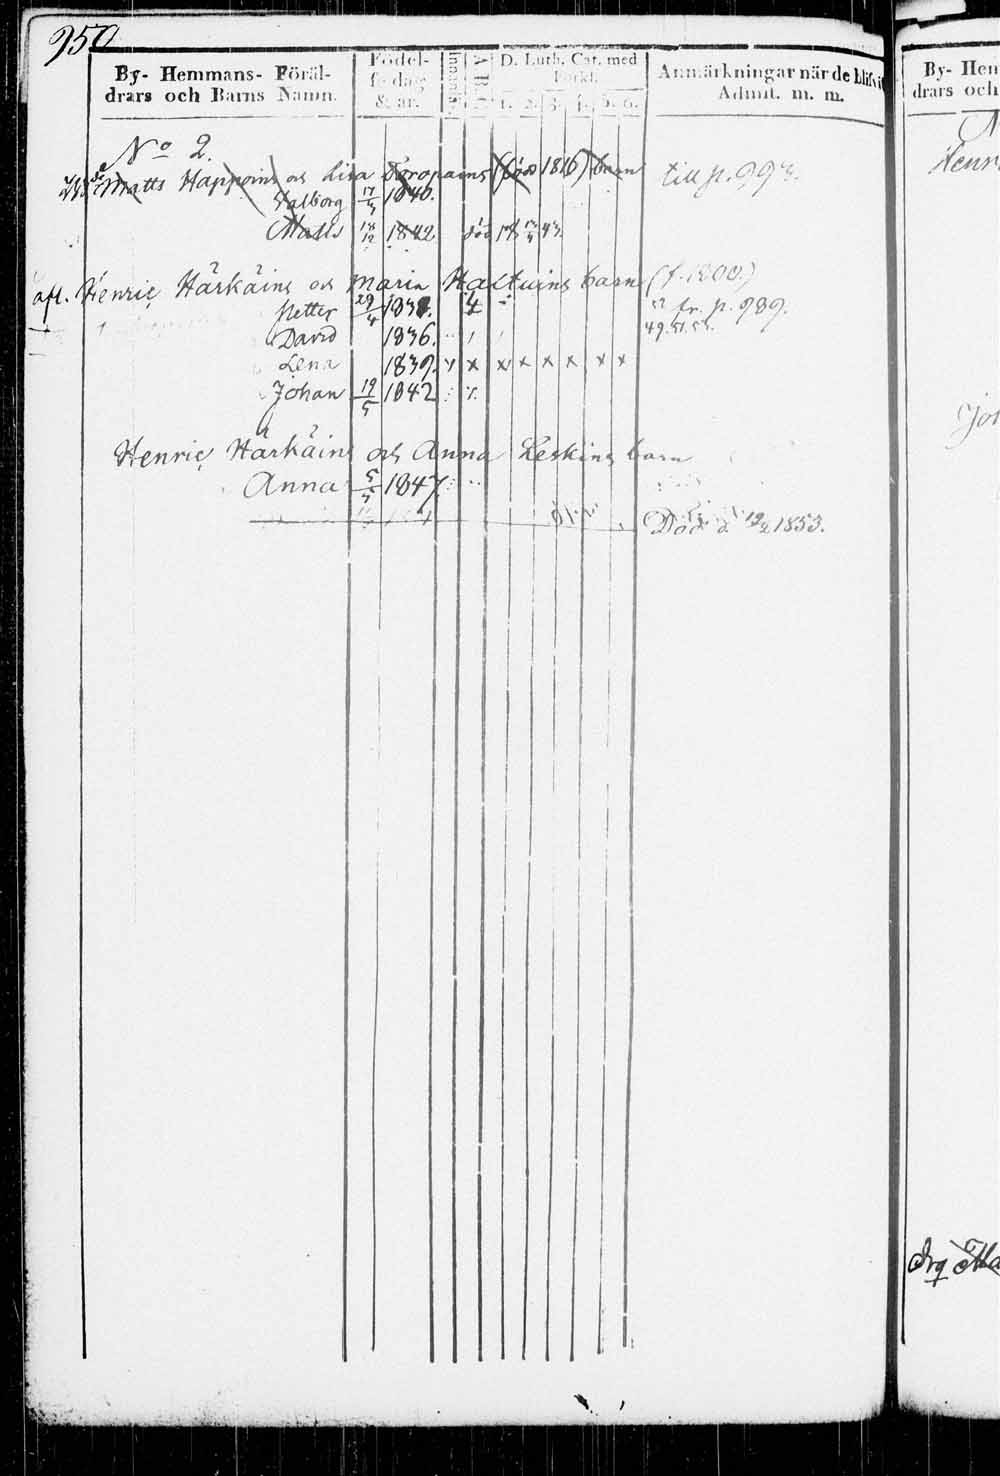 950
By- Hemmans- Föräl-
drars och Barns Namn.
Födel-
sedag
& år.
Innanl.
A B C
D. Luth. Cat. med
Förkl.
1. 2. 3. 4. 5. 6.
Anmärkningar när de blifvit
Admit. m. m.
No 2.
Matts Happoins och Lisa Europaeus (född 1816) barn till p. 993.
Walborg 17/3 1840.
Matts 18/12 1842 död 18 43.
afl. Henric Härkäins och Maria Haltuins barn (f. 1800.)
Petter 29/4 1831. fr. p. 989.
David 1836. 49. 51. 53.
Lena 1839. x x x x x x x x
Johan 19/5 1842
Henric Härkäins och Anna Leskins barn
Anna 5/5 1847.
Död d. 19/2 1853.
By- Hem
drars och
Henr
Joh
drg Ma